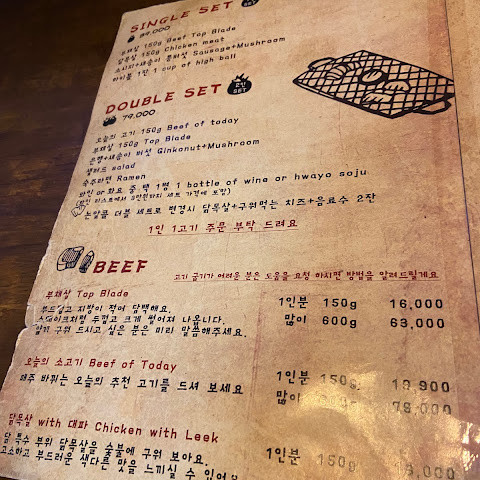 SINGLE SET
39,000
부채살 150g Beef Top Blade
닭목살 150g Chicken meat
소시지+새송이 버섯 Sausage+Mushroom
하이볼 1잔 1 cup of high ball
DOUBLE SET 2인 SET
79,000
오늘의 고기 150g Beef of today
부채살 150g Top Blade
은행+새송이 버섯 Ginkonut+Mushroom
샐러드 salad
숙주라면 Ramen
와인 or 화요 중 택 1병 1 bottle of wine or hwayo soju
논알콜 더블 세트로 변경시 닭목살+구워먹는 치즈+음료수 2잔
1인 1고기 주문 부탁 드려요
BEEF
고기 굽기가 어려운 분은 도움을 요청 하시면 방법을 알려드릴게요
부채살 Top Blade
부드럽고 지방이 적어 담백해요.
1인분 150g 16,000
스테이크처럼 두껍고 크게 썰어져 나옵니다.
많이 600g 63,000
얇게 구워 드시고 싶은 분은 미리 말씀해주세요.
오늘의 소고기 Beef of Today
매주 바뀌는 오늘의 추천 고기를 드셔 보세요
1인분 150g 19,900
많이 78,000
닭목살 with 대파 Chicken with Leek
닭 특수 부위 닭목살을 숯불에 구워 보아요.
1인분 150g
고소하고 부드러운 색다른 맛을 느끼실 수 있어요